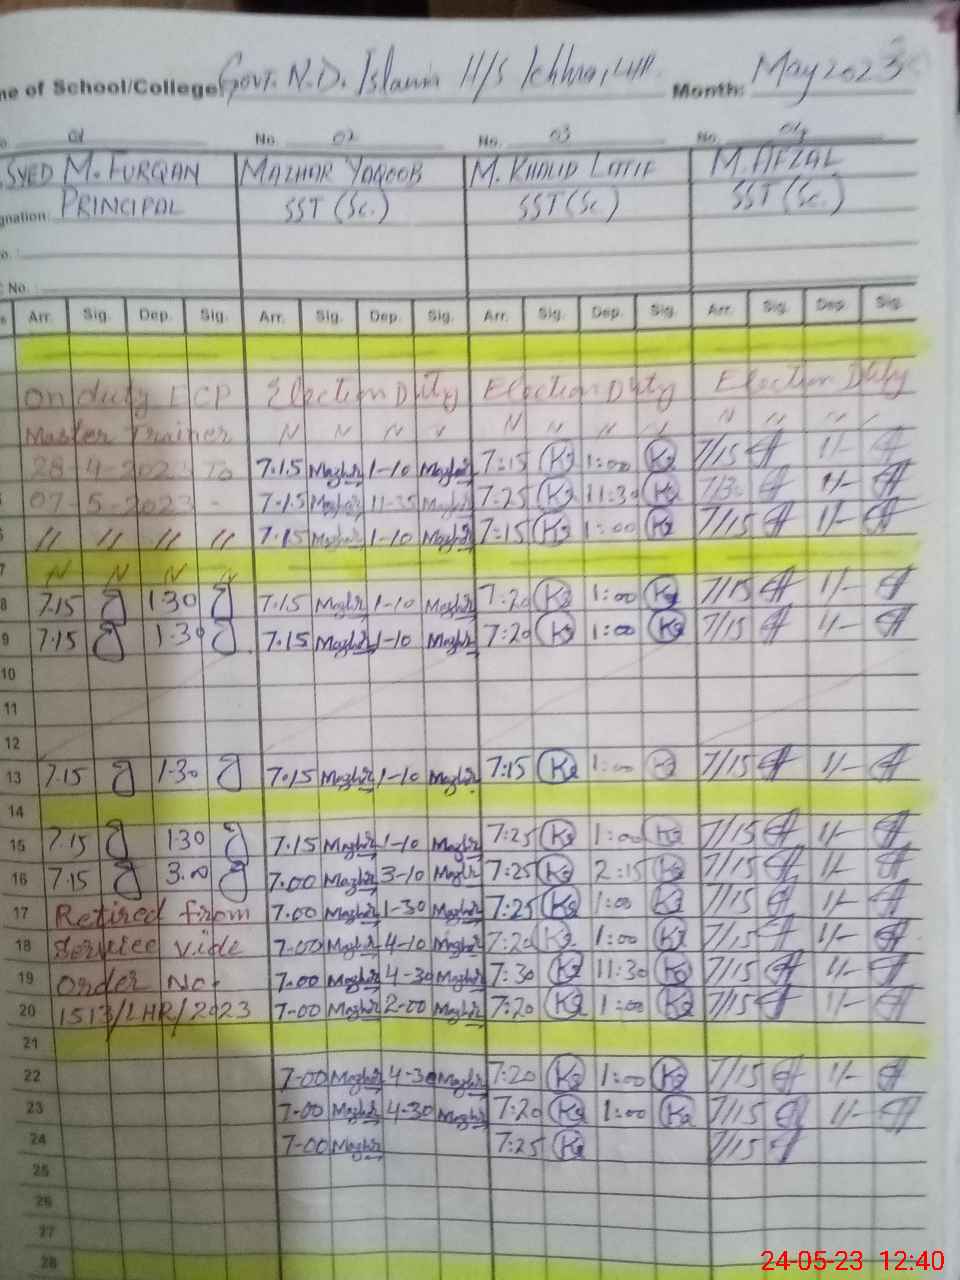 me of School/College Govt. N.D. Islamia H/S Ichhra, LHR. Month: May 2023
o. 01 No. 02 No. 03 No. 04
SYED M. FURQAN MAZHAR YAQOOB M. KHALID LATIF M. AFZAL
gnation: PRINCIPAL SST (Sc.) SST (Sc) SST (Sc.)
o. :
No. :
s Arr. Sig. Dep. Sig. Arr. Sig. Dep. Sig. Arr. Sig. Dep. Sig. Arr. Sig. Dep. Sig.
On duty ECP Election Duty Election Duty Election Duty
Master Trainer 〃 〃 〃 〃 〃 〃 〃 〃 〃 〃 〃 〃
28-4-2023 To 7.15 Mazhir 1-10 Mazhir 7:15 K 1:00 K 7/15 1/-
07-5-2023 - 7-15 Mazhir 11-35 Mazhir 7:25 K 11:30 K
6 〃 〃 〃 〃 7.15 Mazhir 1-10 Mazhir 7:15 K 1:00 K 7/15 1/-
7 〃 〃 〃 〃
8 7.15 1.30 7.15 Mazhir 1-10 Mazhir 7:20 K 1:00 K 7/15 1/-
9 7.15 1.30 7.15 Mazhir 1-10 Mazhir 7:20 K 1:00 K 7/15 1/-
10
11
12
13 7.15 1.30 7.15 Mazhir 1-10 Mazhir 7:15 K 1:00 K 7/15 1/-
14
15 7.15 1.30 7.15 Mazhir 1-10 Mazhir 7:25 K 1:00 K 7/15 1/-
16 7.15 3.00 7.00 Mazhir 3-10 Mazhir 7:25 K 2:15 K 7/15 1/-
17 Retired from 7.00 Mazhir 1-30 Mazhir 7:25 K 1:00 K 7/15 1/-
18 service vide 7-00 Mazhir 4-10 Mazhir 7:20 K 1:00 K 7/15 1/-
19 order No. 7.00 Mazhir 4-30 Mazhir 7:30 K 11:30 K 7/15 1/-
20 1513/LHR/2023 7-00 Mazhir 2-00 Mazhir 7:20 K 1:00 K 7/15 1/-
21
22 7-00 Mazhir 4-30 Mazhir 7:20 K 1:00 K 7/15 1/-
23 7-00 Mazhir 4-30 Mazhir 7:20 K 1:00 K 7/15 1/-
24 7-00 Mazhir 7:25 K 7/15
25
26
27
28
24-05-23 12:40